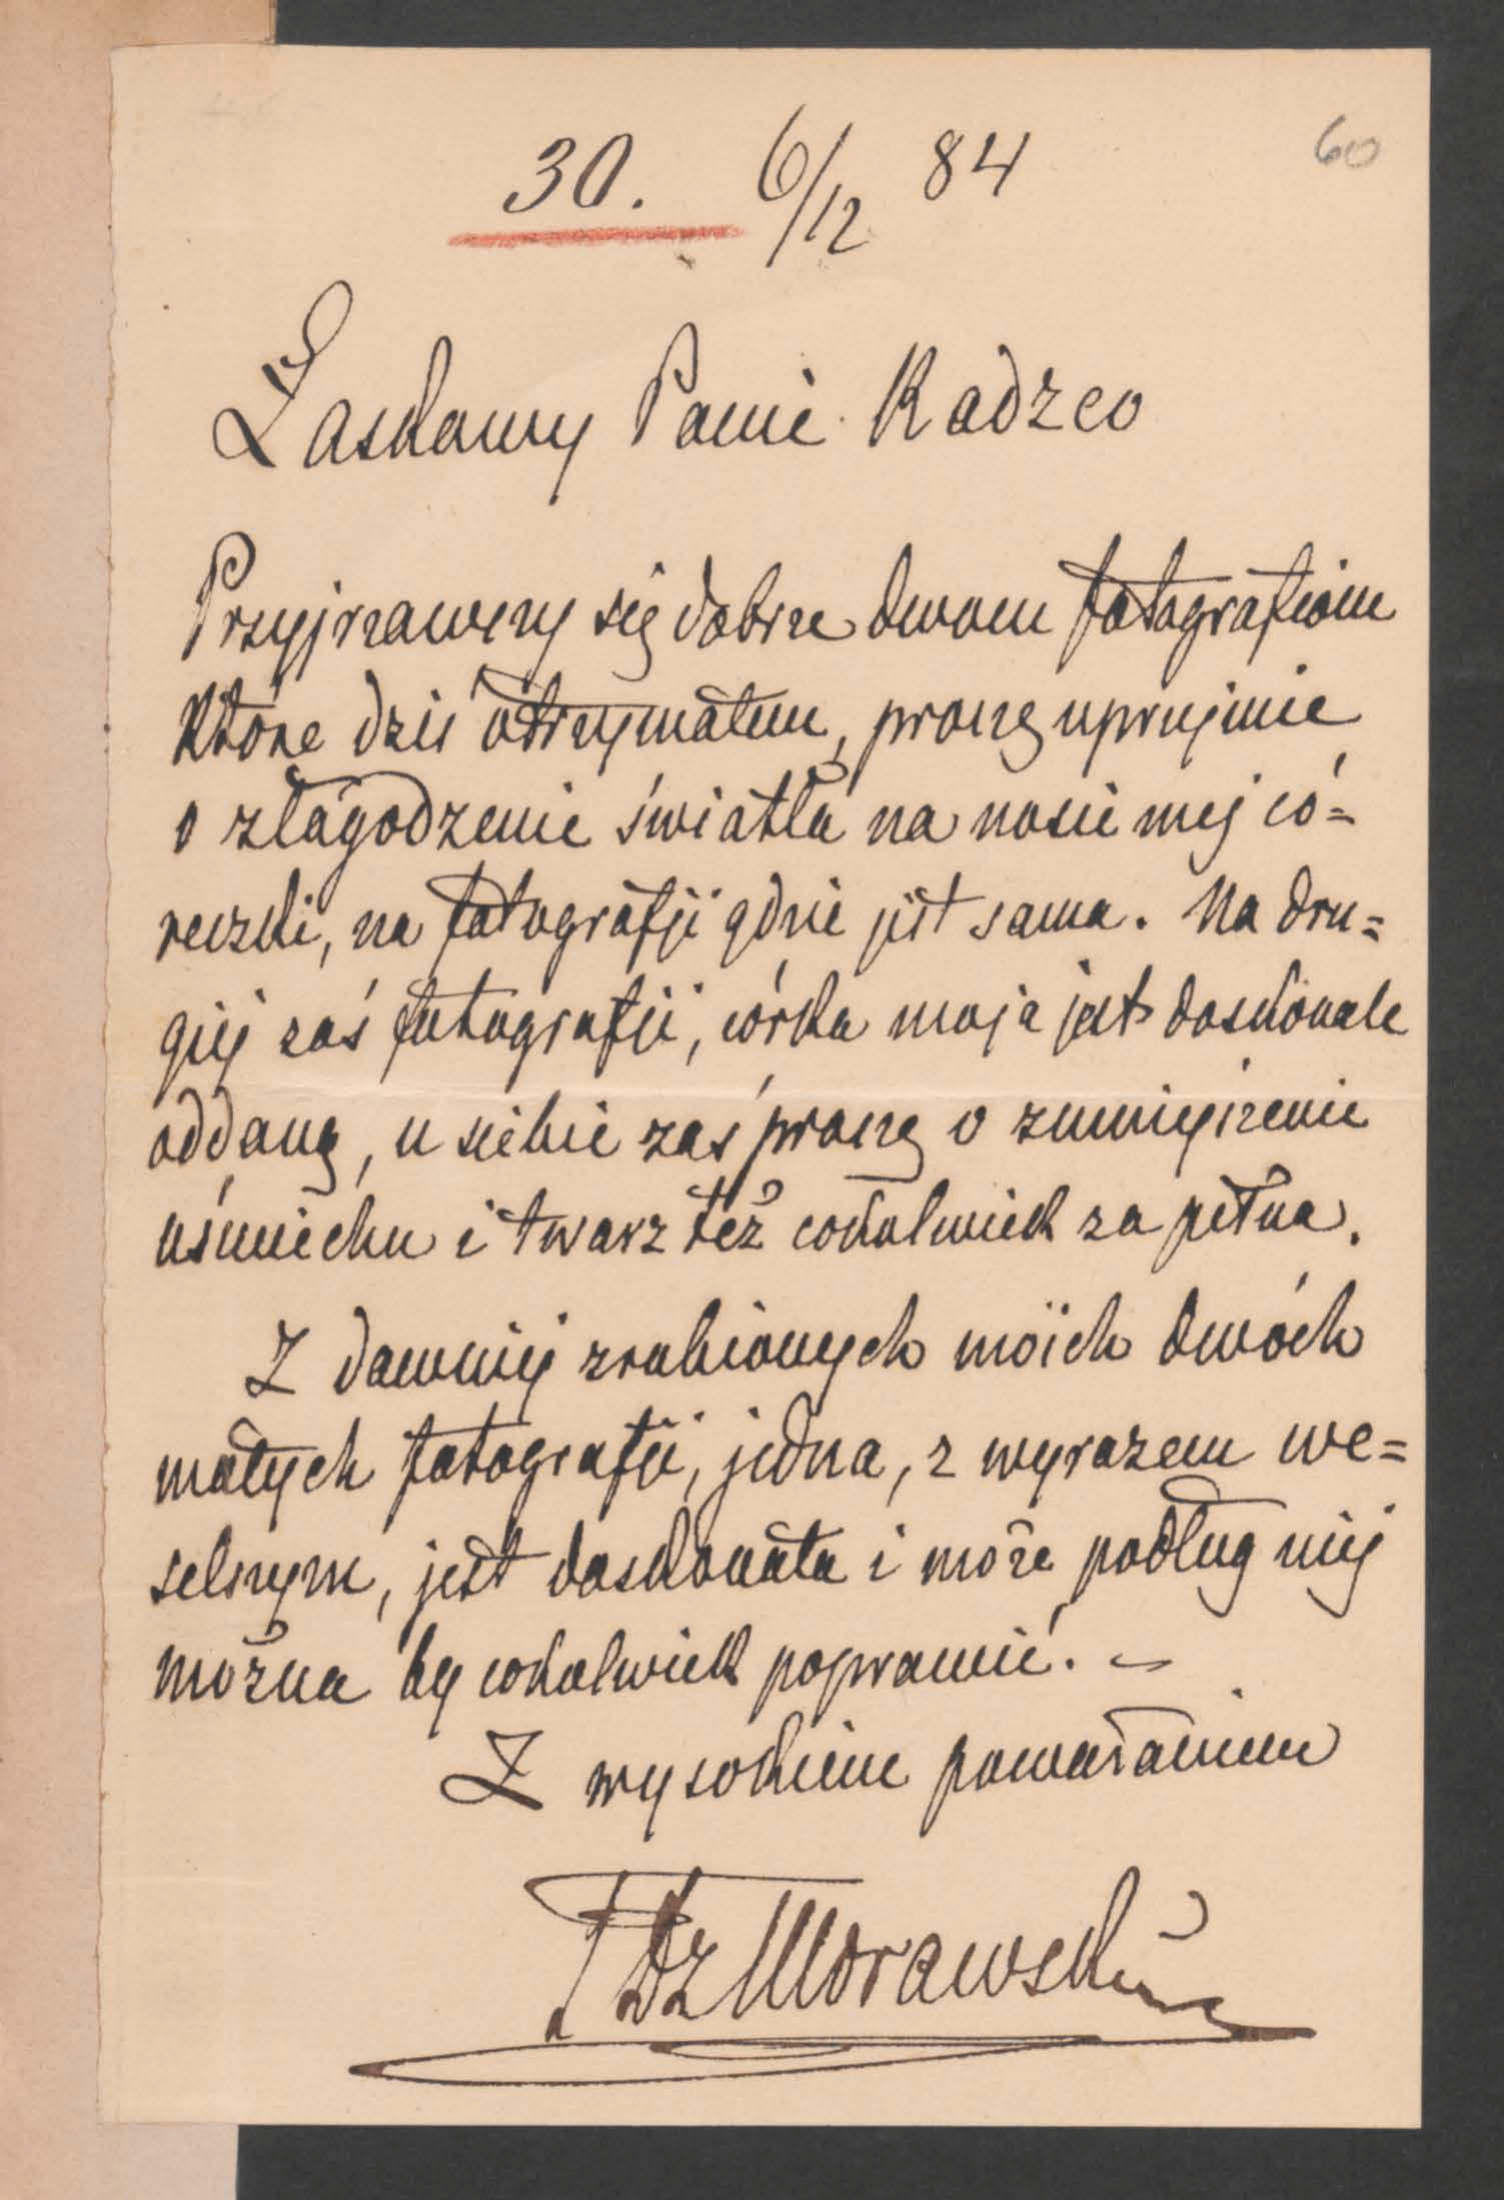 30. 6/12 84
60
Łaskawy Panie Radzco
Przyjrzawszy się dobrze dwom fotografiom
które dziś otrzymałem, proszę uprzejmie
o złagodzenie światła na nosie mej có=
reczki, na fotografji gdzie jest sama. Na dru=
giej zaś fotografji, córka moja jest doskonale
oddaną, u siebie zaś proszę o zmniejszenie
uśmiechu i twarz też cokolwiek za pełna.
Z dawniej zrobionych moich dwóch
małych fotografji, jedna, z wyrazem we=
selszym, jest doskonała i może podług niej
można by cokolwiek poprawić. –
Z wysokiem poważaniem
Morawski